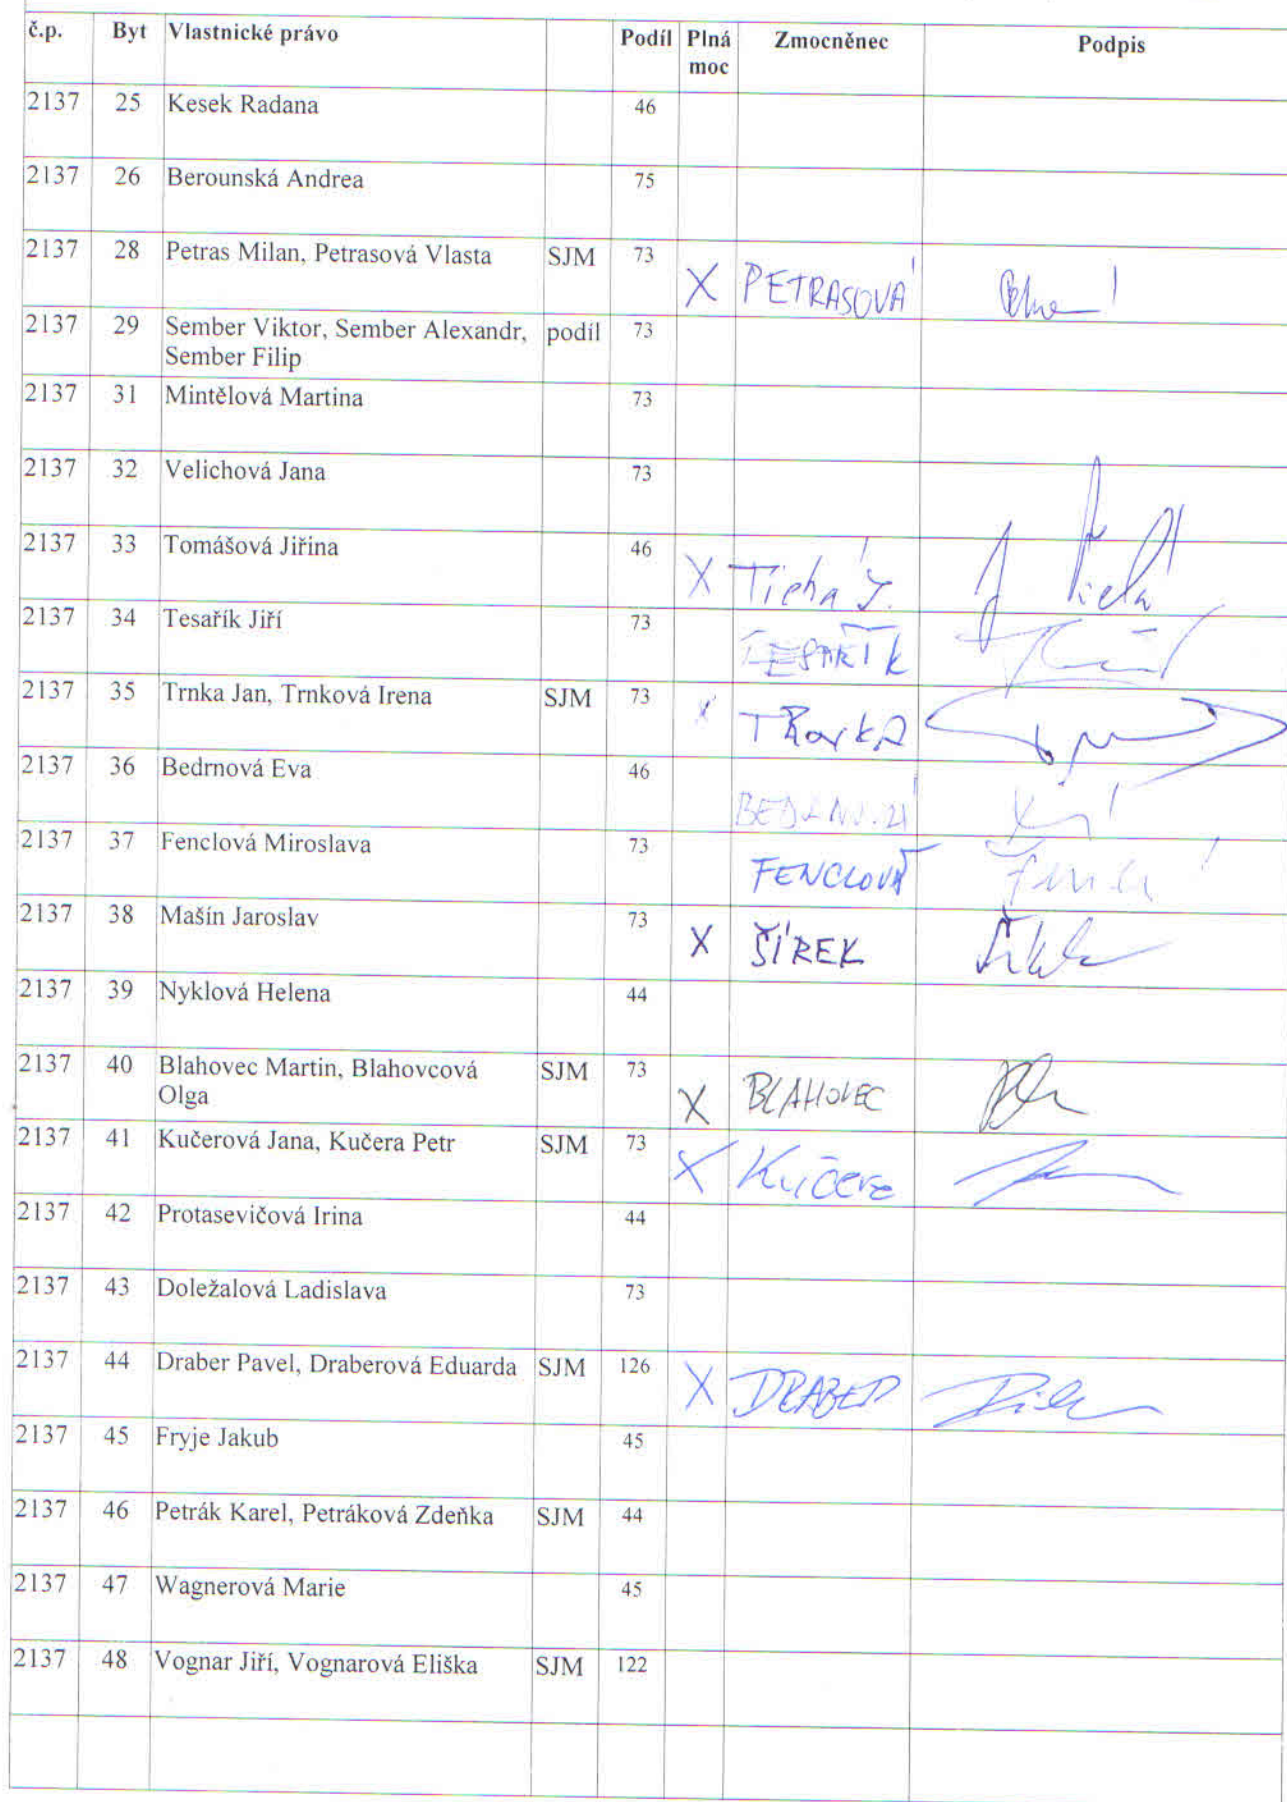 č.p. Byt Vlastnické právo Podíl Plná moc Zmocněnec Podpis
2137 25 Kesek Radana 46
2137 26 Berounská Andrea 75
2137 28 Petras Milan, Petrasová Vlasta SJM 73 X PETRASOVÁ
2137 29 Sember Viktor, Sember Alexandr, podíl 73
Sember Filip
2137 31 Mintělová Martina 73
2137 32 Velichová Jana 73
2137 33 Tomášová Jiřina 46 X Tichá J.
2137 34 Tesařík Jiří 73 TESAŘÍK
2137 35 Trnka Jan, Trnková Irena SJM 73 x
2137 36 Bedrnová Eva 46
2137 37 Fenclová Miroslava 73 FENCLOVÁ
2137 38 Mašín Jaroslav 73 X ŠÍREK
2137 39 Nyklová Helena 44
2137 40 Blahovec Martin, Blahovcová SJM 73 X BLAHOVEC
Olga
2137 41 Kučerová Jana, Kučera Petr SJM 73 X Kučera
2137 42 Protasevičová Irina 44
2137 43 Doležalová Ladislava 73
2137 44 Draber Pavel, Draberová Eduarda SJM 126 X DRABER
2137 45 Fryje Jakub 45
2137 46 Petrák Karel, Petráková Zdeňka SJM 44
2137 47 Wagnerová Marie 45
2137 48 Vognar Jiří, Vognarová Eliška SJM 122